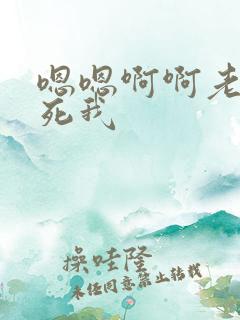 嗯嗯啊啊老
死我
操哇隆
未经同意禁止转载